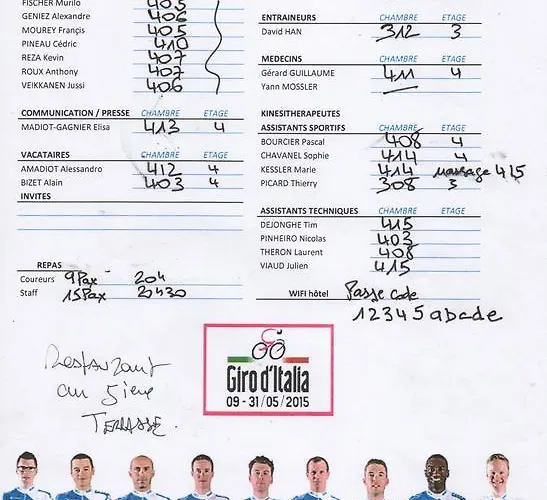 FISCHER Murilo 405
GENIEZ Alexandre 406
MOUREY Françis 405
PINEAU Cédric 410
REZA Kevin 407
ROUX Anthony 407
VEIKKANEN Jussi 406
COMMUNICATION / PRESSE CHAMBRE ETAGE
MADIOT-GAGNIER Elisa 413 4
VACATAIRES CHAMBRE ETAGE
AMADIOT Alessandro 412 4
BIZET Alain 403 4
INVITES
REPAS
Coureurs 9Pax 20h
Staff 15Pax 20h30
ENTRAINEURS CHAMBRE ETAGE
David HAN 312 3
MEDECINS CHAMBRE ETAGE
Gérard GUILLAUME 411 4
Yann MOSSLER
KINESITHERAPEUTES
ASSISTANTS SPORTIFS CHAMBRE ETAGE
BOURCIER Pascal 408 4
CHAVANEL Sophie 414 4
KESSLER Marie 414 massage 415
PICARD Thierry 308 3
ASSISTANTS TECHNIQUES CHAMBRE ETAGE
DEJONGHE Tim 415
PINHEIRO Nicolas 403
THERON Laurent 408
VIAUD Julien 415
WIFI hôtel Passe code
12345abcde
Restaurant
au 5ieme
TERRASSE.
Giro d'Italia
09 - 31 / 05 / 2015